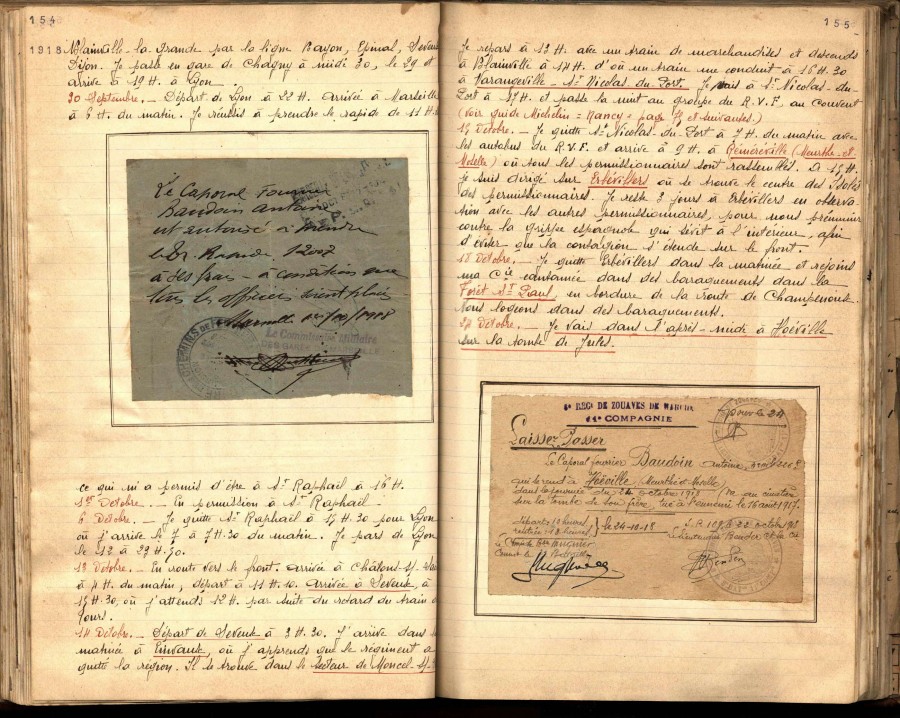 154
1918 Blainville-la-Grande par la ligne Bayon, Epinal,
Dijon. Je passe en gare de Chagny à midi 30, le 29 et
arrive à 19 H. à Lyon
30 Septembre. — Départ de Lyon à 22 H. Arrivée à Marseille
à 6 H. du matin. Je réussis à prendre le rapide de 11 H.
Le Caporal Fourrier
Baudoin Antoine
est autorisé à prendre
le Rapide
à ses frais - à condition que
tous les officiers soient placés
Marseille 1918
Le Commissaire Militaire
ce qui m'a permis d'être à St Raphaël à 16 H.
1er Octobre. — En permission à St Raphaël
6 Octobre. — Je quitte St Raphaël à 17 H. 30 pour Lyon
où j'arrive le 7 à 7 H. 30 du matin. Je pars de Lyon
le 12 à 22 H. 50.
13 Octobre. — En route vers le front. Arrivée à Châlons s/
à 4 H. du matin, départ à 11 H. 10. Arrivée à Seveux, à
17 H. 30, où j'attends 12 H. par suite du retard du train
14 Octobre. — Départ de Seveux à 3 H. 30. J'arrive dans
matinée à où j'apprends que le régiment a
quitté la région. Il se trouve dans le secteur de Moncel s/
155
Je repars à 12 H. avec un train de marchandises et descends
à Blainville à 14 H. d'où un train me conduit à 16 H. 30
à Varangeville - St Nicolas-du-Port. Je vais à St Nicolas-du-
Port à 17 H. et passe la nuit au groupe du R.V.F. au Couvent
(voir guide Michelin = Nancy = page et suivantes.)
15 Octobre. — Je quitte St Nicolas-du-Port à 7 H. du matin avec
les autobus du R.V.F. et arrive à 9 H. à Réméréville (Meurthe-et-
Moselle) où tous les permissionnaires sont rassemblés. A 15 H.
je suis dirigé sur Erbévillers où se trouve le centre des Isolés
des permissionnaires. Je reste 3 jours à Erbévillers en observa-
tion avec les autres permissionnaires, pour nous prémunir
contre la grippe espagnole qui sévit à l'intérieur, afin
d'éviter que la contagion s'étende sur le front.
18 Octobre. — Je quitte Erbévillers dans la matinée et rejoins
ma Cie cantonnée dans des baraquements dans la
Forêt St Paul, en bordure de la route de Champenoux.
Nous logeons dans des baraquements.
24 Octobre. — Je vais dans l'après-midi à Hoéville
sur la tombe de Jules.
8e REGt DE ZOUAVES DE MARCHE
COMPAGNIE
pour le 24
Laissez Passer
Le Caporal fourrier Baudoin Antoine
qui se rend à Hoéville (Meurthe et Moselle)
dans la journée du 24 octobre 1918 va au cimetière
sur la tombe de son frère, tué à l'ennemi le
départ 12 heures
rentrée 18 heures
le 24-10-18
S.P. 109, 22 octobre 1918
Le Lieutenant Bender Ct la Cie
Bender